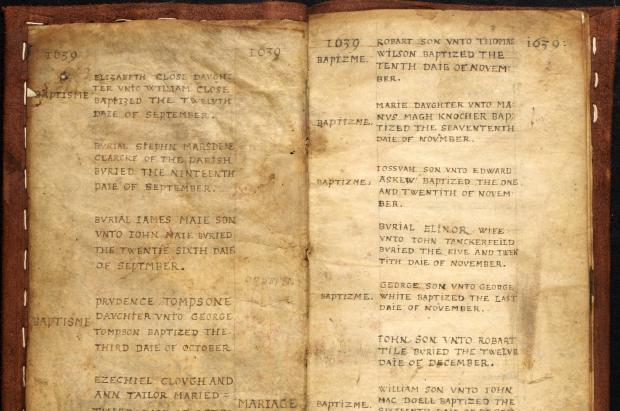 1639 1639
BAPTISME
ELIZABETH CLOSE DAUGH:
TER VNTO WILLIAM CLOSE
BAPTIZED THE TWELVTH
DAIE OF SEPTEMBER.
BURIAL STEPHN MARSDENE
CLARCKE OF THE PARISH
BURIED THE NINTEENTH
DAIE OF SEPTEMBER.
BURIAL IAMES MAIE SON
VNTO IOHN MAIE BURIED
THE TWENTIE SIXTH DAIE
OF SEPTMBER.
BAPTISME
PRUDENCE TOMPSONE
DAUGHTER VNTO GEORGE
TOMPSON BAPTIZED THE
THIRD DAIE OF OCTOBER
EZECHIEL CLOUGH AND
ANN TAILOR MARIED =
MARIAGE
1639 1639:
BAPTIZME.
ROBART SON VNTO THOMAS
WILSON BAPTIZED THE
TENTH DAIE OF NOVEM
BER.
BAPTIZME.
MARIE DAUGHTER VNTO MA
NVS MAGH KNOCHER BAP:
TIZED THE SEAVENTENTH
DAIE OF NOVMBER.
BAPTIZME.
IOSSVAH SON VNTO EDWARD
ASKEW BAPTIZED THE ONE
AND TWENTITH OF NOVEM
BER.
BURIAL ELINOR WIFE
VNTO IOHN TANCKERFEILD
BURIED THE FIVE AND TWEN
TITH DAIE OF NOVEMBER.
BAPTIZME.
GEORGE SON VNTO GEORGE
WHITE BAPTIZED THE LAST
DAIE OF NOVEMBER.
IOHN SON VNTO ROBART
TILE BURIED THE TWELVE
DAIE OF DECEMBER.
BAPTIZME.
WILLIAM SON VNTO IOHN
MAC DOELL BAPTIZED THE